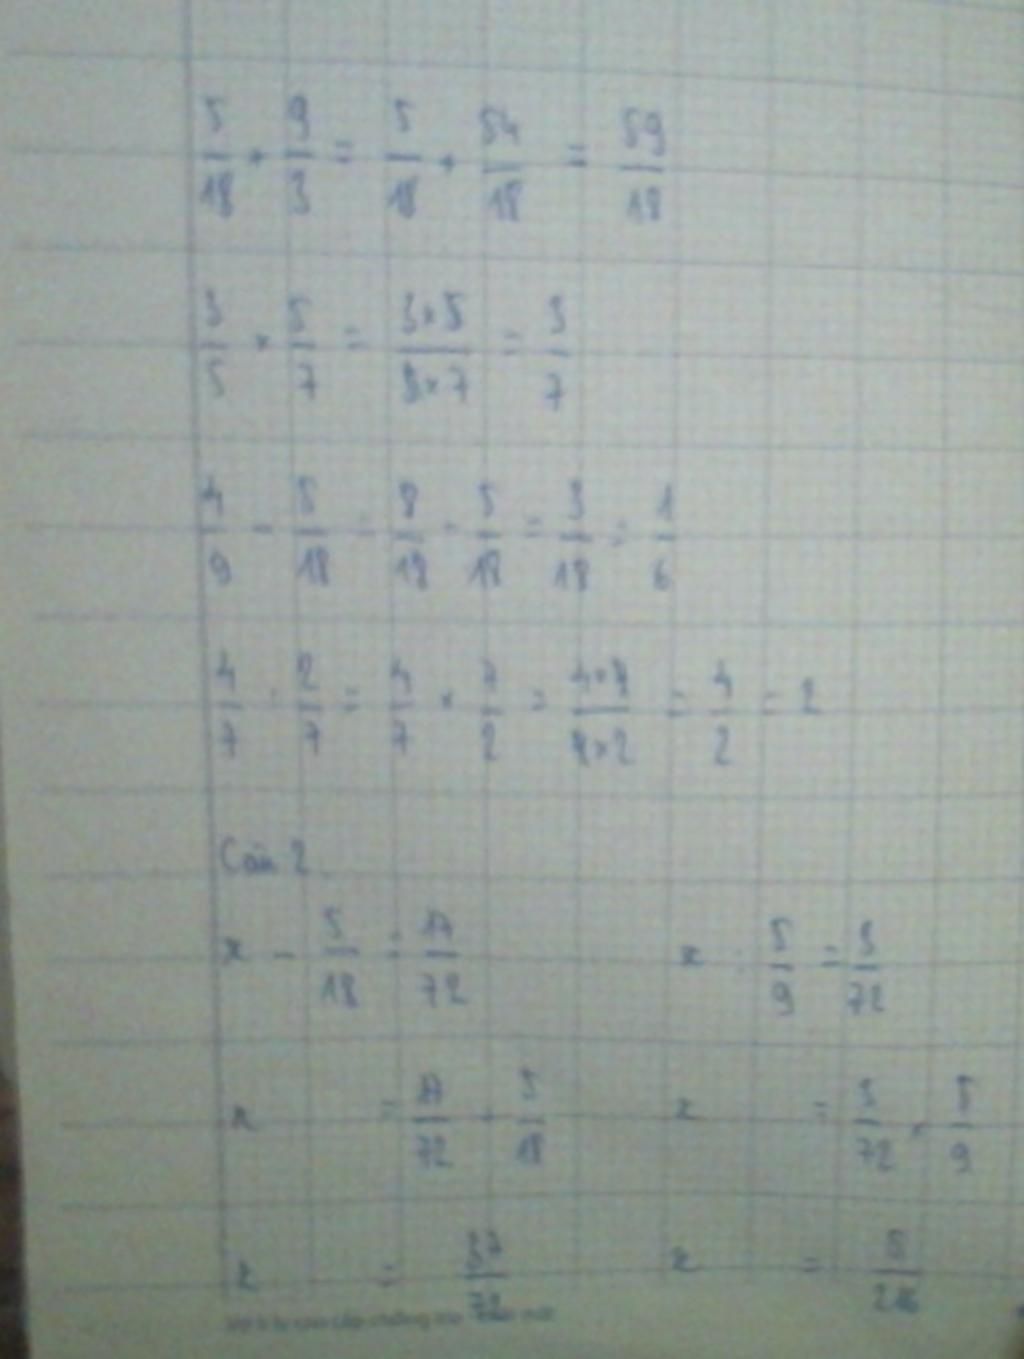 5/18 + 9/3 = 5/18 + 54/18 = 59/18
3/5 × 5/7 = 3×5/5×7 = 3/7
4/9 - 5/18 = 8/18 - 5/18 = 3/18 = 1/6
4/7 : 2/7 = 4/7 × 7/2 = 4×7/7×2 = 4/2 = 2
Câu 2
x - 5/18 = 17/72 x : 5/9 = 3/72
x = 17/72 + 5/18 x = 3/72 × 5/9
x = 37/72 x = 5/216